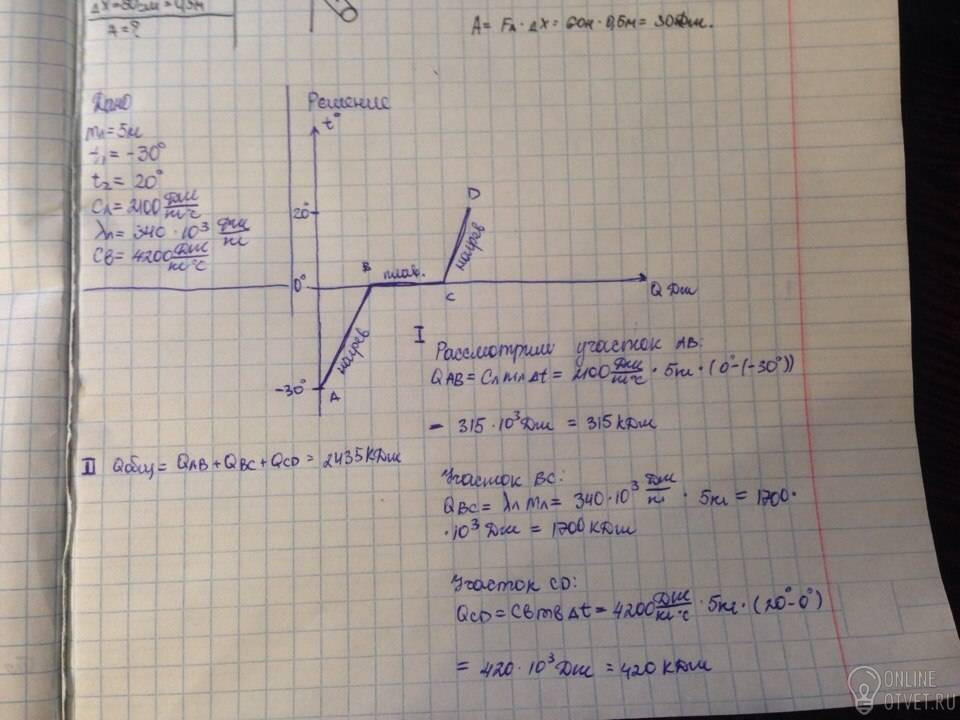 ΔX=50см=0,5м
A=?
A= Fₐ·ΔX= 60н· 0,5м= 30Дж.
Дано
mл=5кг
t₁= -30°
t₂= 20°
Cл=2100 Дж/кг°С
λл= 340·10³ Дж/кг
Cв= 4200 Дж/кг°С
Решение
t°
20°
0°
-30°
A
B
C
D
нагрев
плав.
нагрев
Q Дж
I Рассмотрим участок AB:
QAB= CлmлΔt= 2100 Дж/кг°С · 5кг·(0°-(-30°))
- 315·10³Дж = 315кДж
II Qобщ= QAB+QBC+QCD= 2435кДж
Участок BC:
QBC= λл mл= 340·10³ Дж/кг · 5кг = 1700·
·10³Дж = 1700кДж
Участок CD:
QCD= CвmвΔt= 4200 Дж/кг°С ·5кг·(20°-0°)
= 420·10³Дж = 420кДж
ONLINE
OTVET.RU